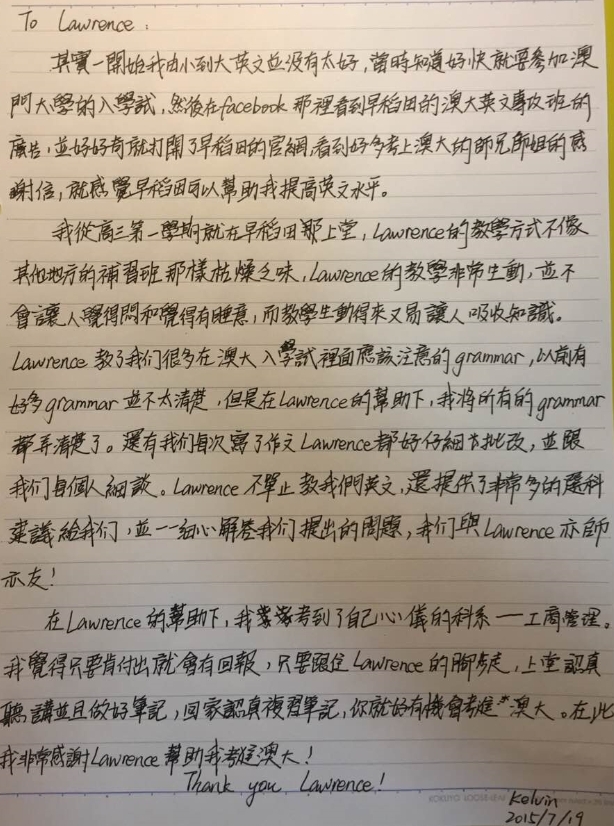 To Lawrence:
其實一開始我由小到大英文並没有太好，當時知道好快就要參加澳
門大學的入學試，然後在facebook 那裡看到早稻田的澳大英文專攻班的
廣告，並好好奇就打開了早稻田的官網，看到好多考上澳大的師兄師姐的感
謝信，就感覺早稻田可以幫助我提高英文水平。
我從高三第一學期就在早稻田那上堂，Lawrence的教學方式不像
其他地方的補習班那樣枯燥乏味，Lawrence的教學非常生動，並不
會讓人覺得悶和覺得有睡意，而教學生動得來又易讓人吸收知識。
Lawrence 教了我们很多在澳大入學試裡面應該注意的grammar，以前有
好多grammar 並不太清楚，但是在Lawrence的幫助下，我将所有的grammar
都弄清楚了。還有我们每次寫了作文Lawrence都好仔細去批改，並跟
我们每個人細談。Lawrence 不單止教我們英文，還提供了非常多的選科
建議給我们，並一一細心解答我们提出的問題，我们與Lawrence亦師
亦友！
在Lawrence的幫助下，我考到了自己心儀的科系——工商管理。
我覺得只要肯付出就會有回報，只要跟住Lawrence的腳步走，上堂認真
聽講並且做好筆記，回家認真複習筆記，你就好有機會考進澳大。在此
我非常感謝Lawrence幫助我考進澳大！
Thank you Lawrence!
Kelvin
2015/7/19